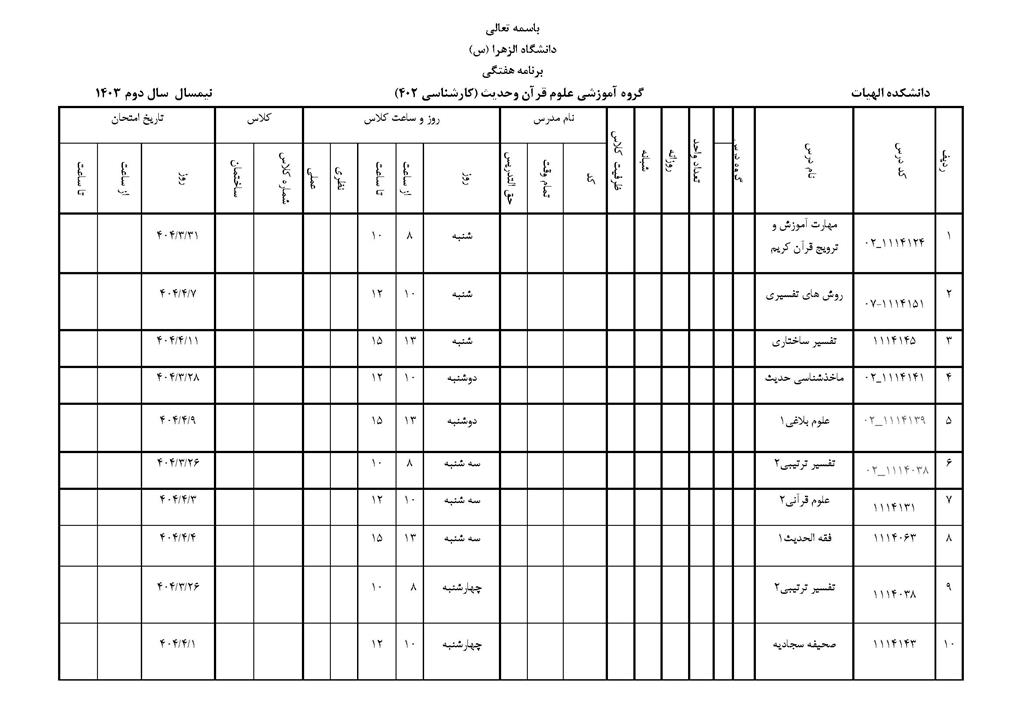 باسمه تعالی
دانشگاه الزهرا (س)
برنامه هفتگی
دانشکده الهیات گروه آموزشی علوم قرآن وحدیث (کارشناسی ۴۰۲) نیمسال سال دوم ۱۴۰۳
ردیف کد درس نام درس گروه درس تعداد واحد روزانه شبانه ظرفیت کلاس نام مدرس روز و ساعت کلاس کلاس تاریخ امتحان
کد تمام وقت حق التدریس روز از ساعت تا ساعت نظری عملی شماره کلاس ساختمان روز از ساعت تا ساعت
۱ ۱۱۱۴۱۲۴_۰۲ مهارت آموزش و ترویج قرآن کریم شنبه ۸ ۱۰ ۴۰۴/۳/۳۱
۲ ۱۱۱۴۱۵۱-۰۷ روش های تفسیری شنبه ۱۰ ۱۲ ۴۰۴/۴/۷
۳ ۱۱۱۴۱۴۵ تفسیر ساختاری شنبه ۱۳ ۱۵ ۴۰۴/۴/۱۱
۴ ۱۱۱۴۱۴۱_۰۲ ماخذشناسی حدیث دوشنبه ۱۰ ۱۲ ۴۰۴/۳/۲۸
۵ ۱۱۱۴۱۳۹_۰۲ علوم بلاغی۱ دوشنبه ۱۳ ۱۵ ۴۰۴/۴/۹
۶ ۱۱۱۴۰۳۸_۰۲ تفسیر ترتیبی۲ سه شنبه ۸ ۱۰ ۴۰۴/۳/۲۶
۷ ۱۱۱۴۱۳۱ علوم قرآنی۲ سه شنبه ۱۰ ۱۲ ۴۰۴/۴/۳
۸ ۱۱۱۴۰۶۳ فقه الحدیث۱ سه شنبه ۱۳ ۱۵ ۴۰۴/۴/۴
۹ ۱۱۱۴۰۳۸ تفسیر ترتیبی۲ چهارشنبه ۸ ۱۰ ۴۰۴/۳/۲۶
۱۰ ۱۱۱۴۱۴۳ صحیفه سجادیه چهارشنبه ۱۰ ۱۲ ۴۰۴/۴/۱